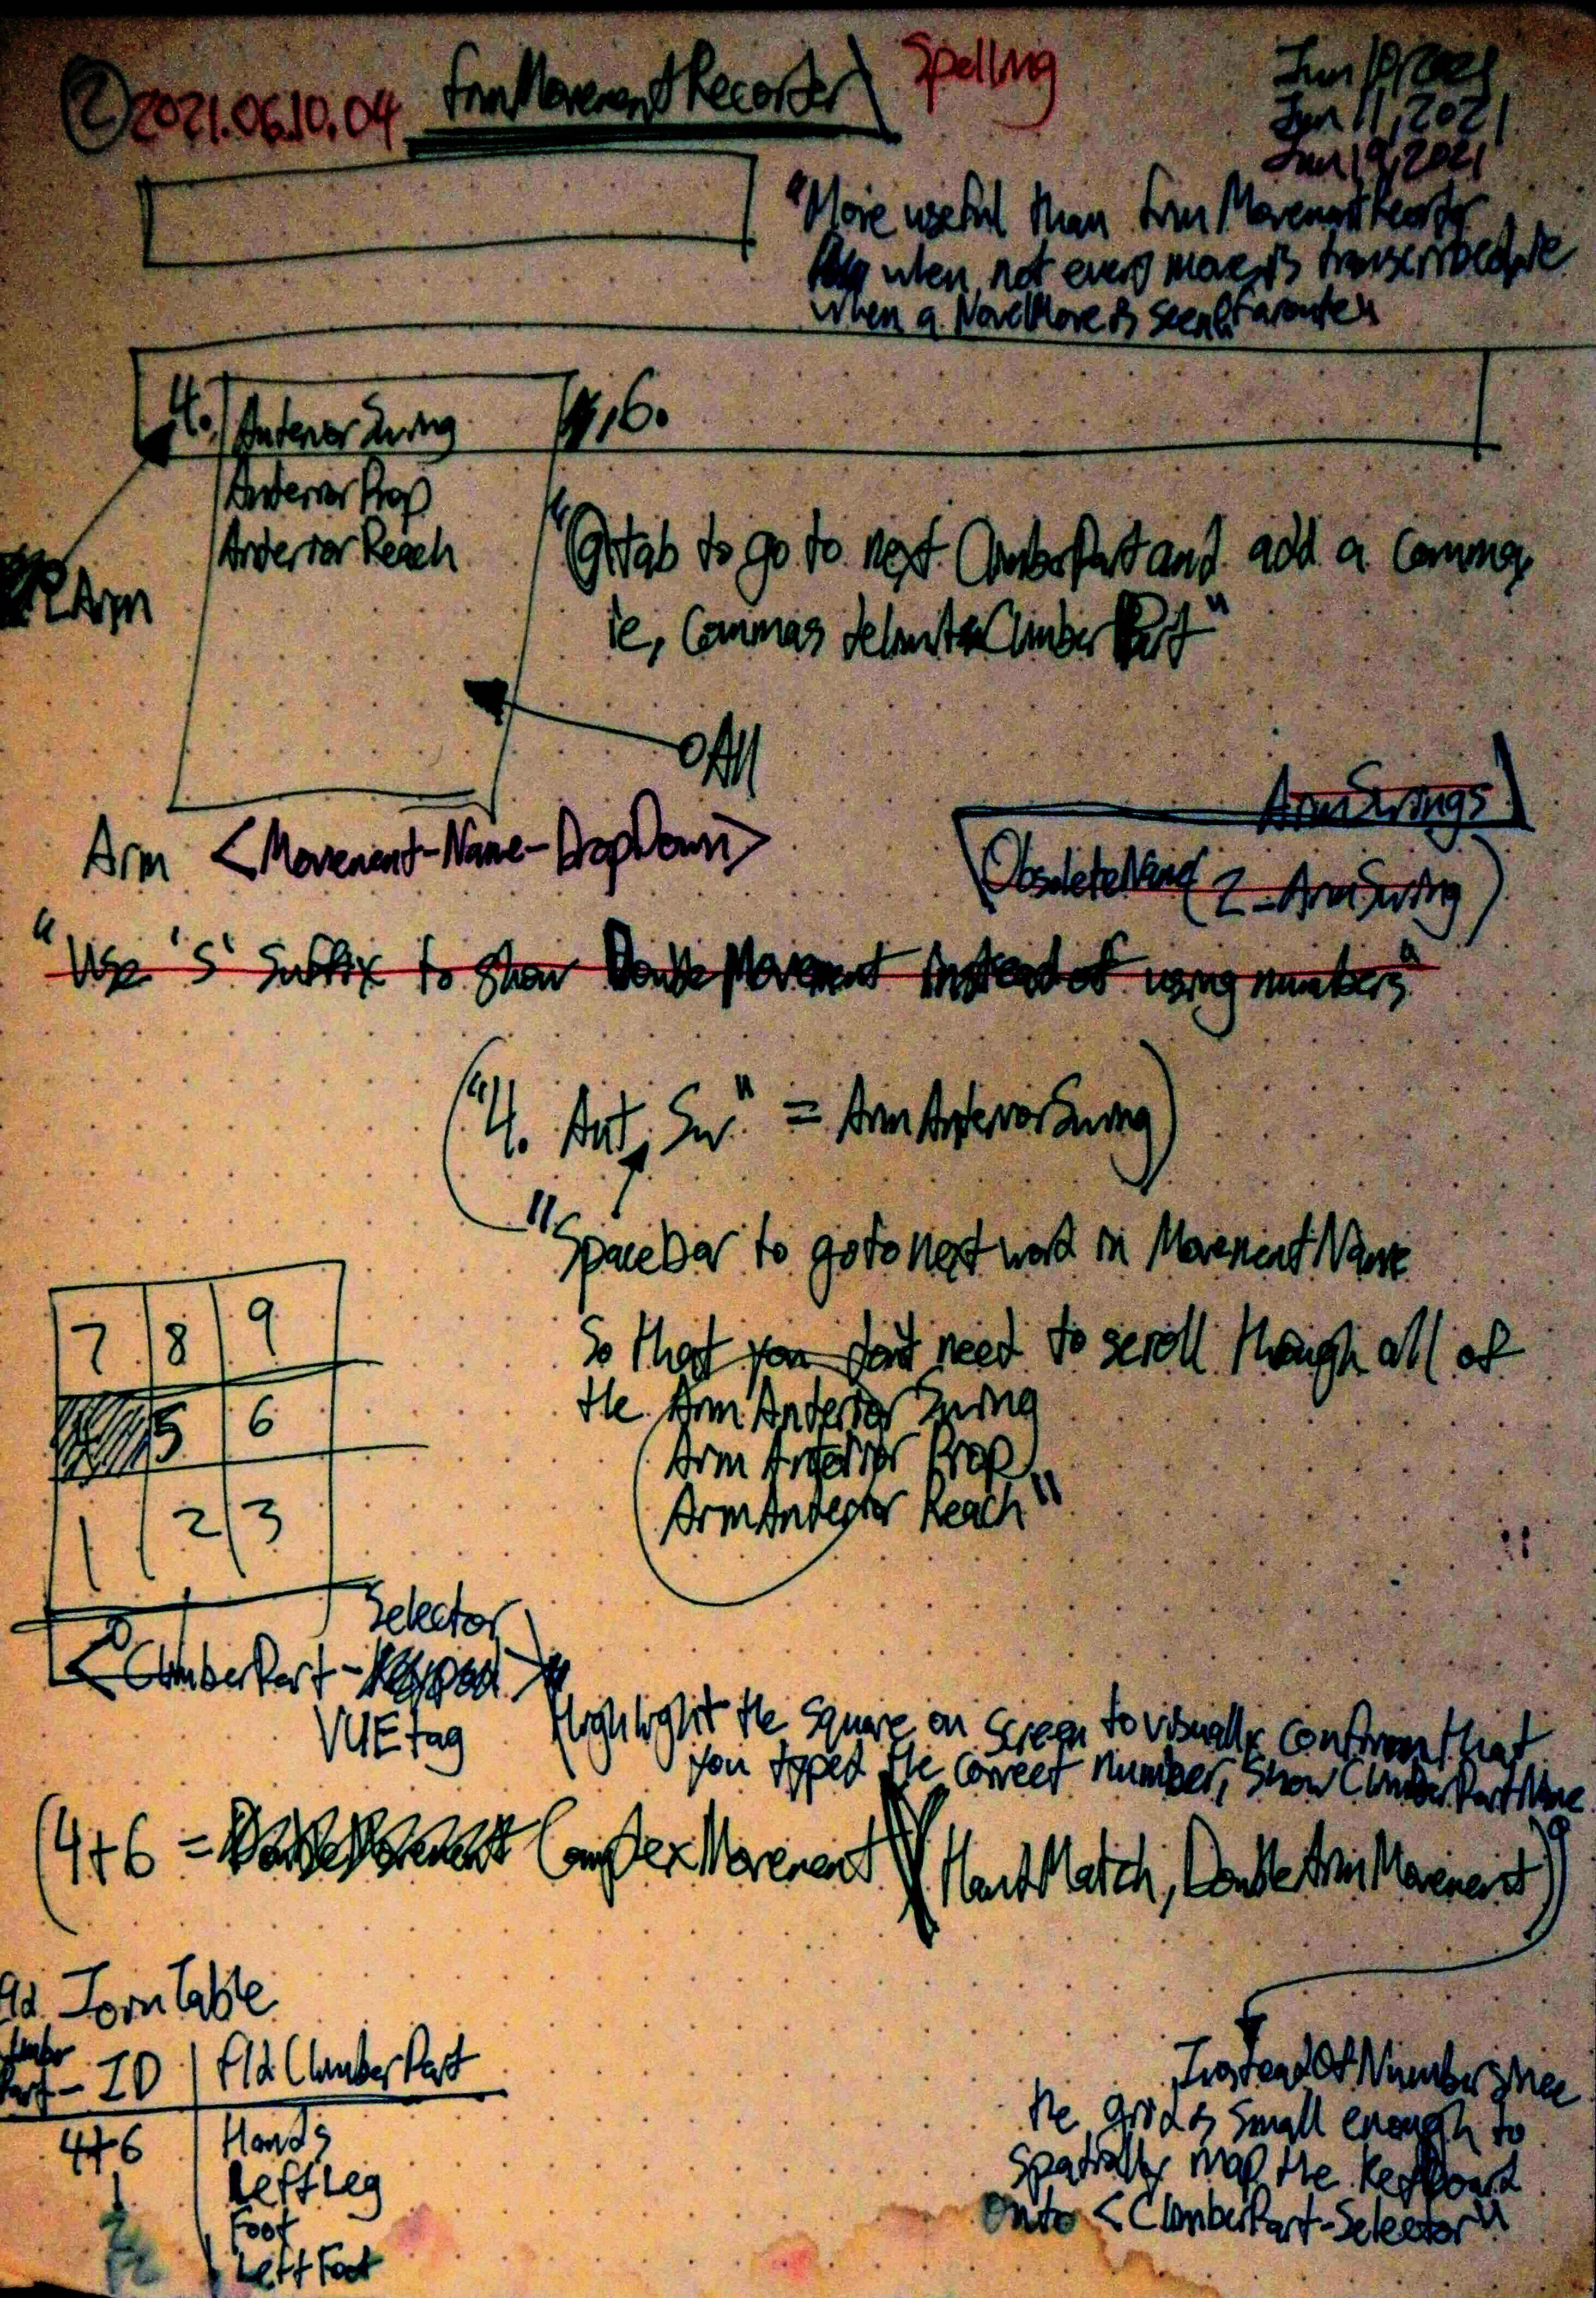 2 2021.06.10.04 frmMovementRecorder Spelling
Jun 10, 2021
Jun 11, 2021
Jun 19, 2021
"More useful than frmMovementRecorder
when not every move is transcribed, ie
when a NovelMove is seen
4. AnteriorSwing , 6.
AnteriorProp
AnteriorReach
Arm
"tab to go to next ClimberPart and add a comma,
ie, Commas delimit ClimberPart"
All
Arm <Movement-Name-DropDown>
ArmSwings
ObsoleteName(2-ArmSwing)
"Use 's' Suffix to show Double Movement instead of using numbers"
("4. Ant, Sw" = ArmAnteriorSwing)
"Spacebar to go to next word in MovementName
So that you don't need to scroll though all of
the ArmAnteriorSwing
Arm Anterior Prop
ArmAnterior Reach"
7 8 9
5 6
1 2 3
0
Selector
<ClimberPart-Keypad>
VUE tag
"Highlight the square on screen to visually confirm that
you typed the correct number, Show ClimberPartName
(4+6 = DoubleMovement ComplexMovement)(HandMatch, DoubleArmMovement)
fld JoinTable
Climber
Part-ID fldClimberPart
4+6 Hands
1 LeftLeg
Foot
LeftFoot
InsteadOfNumbers,
the grid is small enough to
spatially map the Keyboard
onto <ClimberPart-Selector"